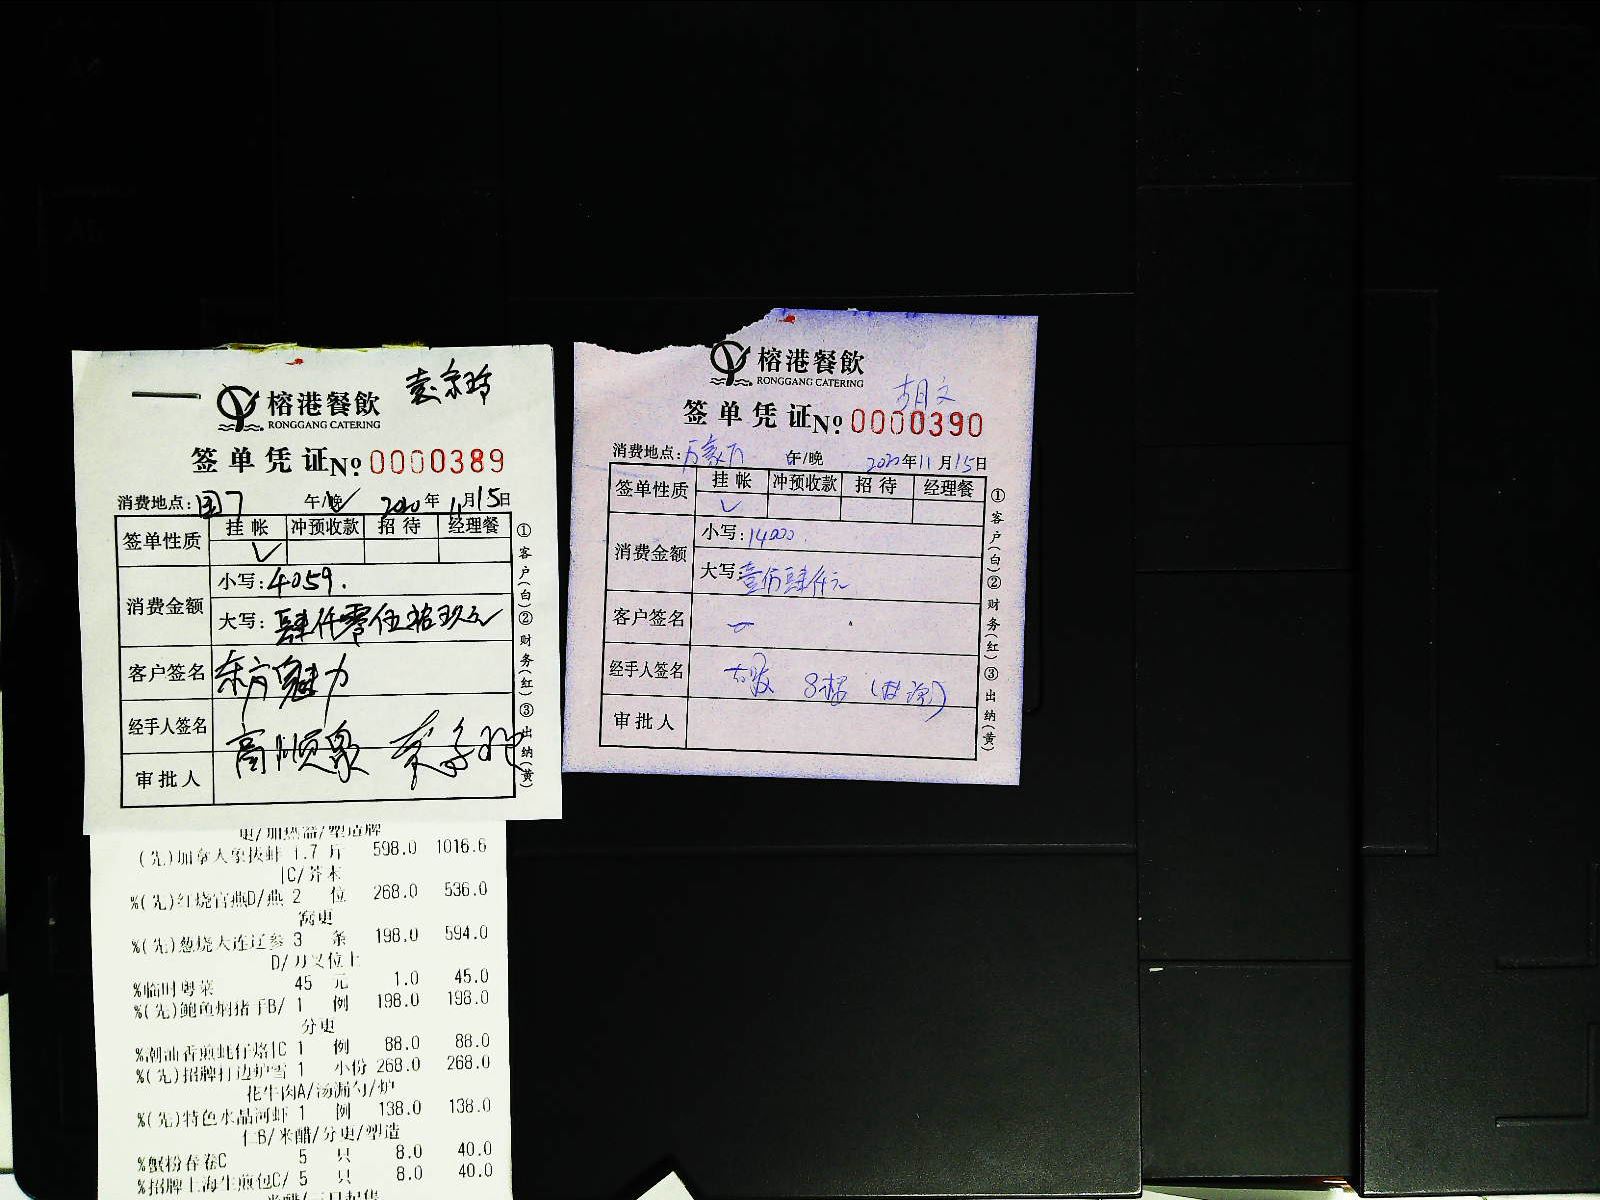 榕港餐飲
RONGGANG CATERING
签单凭证No 0000389
消费地点: 午/晚 2020年11月15日
签单性质 挂帐 冲预收款 招待 经理餐
消费金额 小写:4059.
大写:肆仟零伍拾玖元
客户签名 东方魅力
经手人签名
审批人
①客户(白)②财务(红)③出纳(黄)
(先)加拿大象拔蚌 1.7 斤 598.0 1016.6
IC/芥末
%(先)红烧官燕D/燕 2 位 268.0 536.0
窝更
%(先)葱烧大连辽参 3 条 198.0 594.0
D/刀叉位上
%临时粤菜 45 元 1.0 45.0
%(先)鲍鱼焖猪手B/ 1 例 198.0 198.0
分更
%潮汕香煎蚝仔烙IC 1 例 88.0 88.0
%(先)招牌打边炉雪 1 小份 268.0 268.0
花牛肉A/汤漏勺/炉
%(先)特色水晶河虾 1 例 138.0 138.0
仁B/米醋/分更/塑造
%蟹粉春卷C 5 只 8.0 40.0
%招牌上海生煎包C/ 5 只 8.0 40.0
榕港餐飲
RONGGANG CATERING
胡文
签单凭证No 0000390
消费地点: 午/晚 2020年11月15日
签单性质 挂帐 冲预收款 招待 经理餐
消费金额 小写:14000.
大写:壹万肆仟元
客户签名
经手人签名
审批人
①客户(白)②财务(红)③出纳(黄)